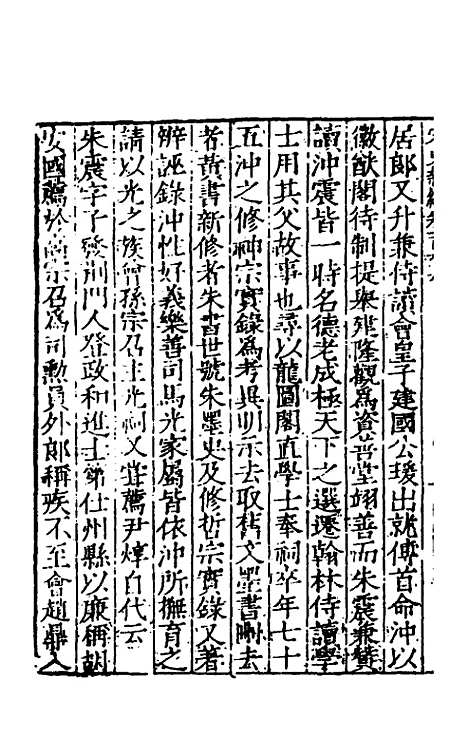 居郎又升兼侍讀會皇子建國公瑗出就傅首命沖以
徽猷閣待制提舉建隆觀爲資善堂翊善而朱震兼贊
讀沖震皆一時名德老成極天下之選遷翰林侍讀學
士用其父故事也尋以龍圖閣直學士奉祠卒年七十
五沖之修神宗實錄爲考異明示去取舊文墨書刪去
者黃書新修者朱書世號朱墨史及修哲宗實錄又著
辨誣錄沖性好義樂善司馬光家屬皆依沖所撫育之
請以光之族曾孫宗召主光祠又嘗薦尹焞自代云
朱震字子發荆門人登政和進士第仕州縣以廉稱胡
安國薦於高宗召爲司勳員外郎稱疾不至會趙鼎入